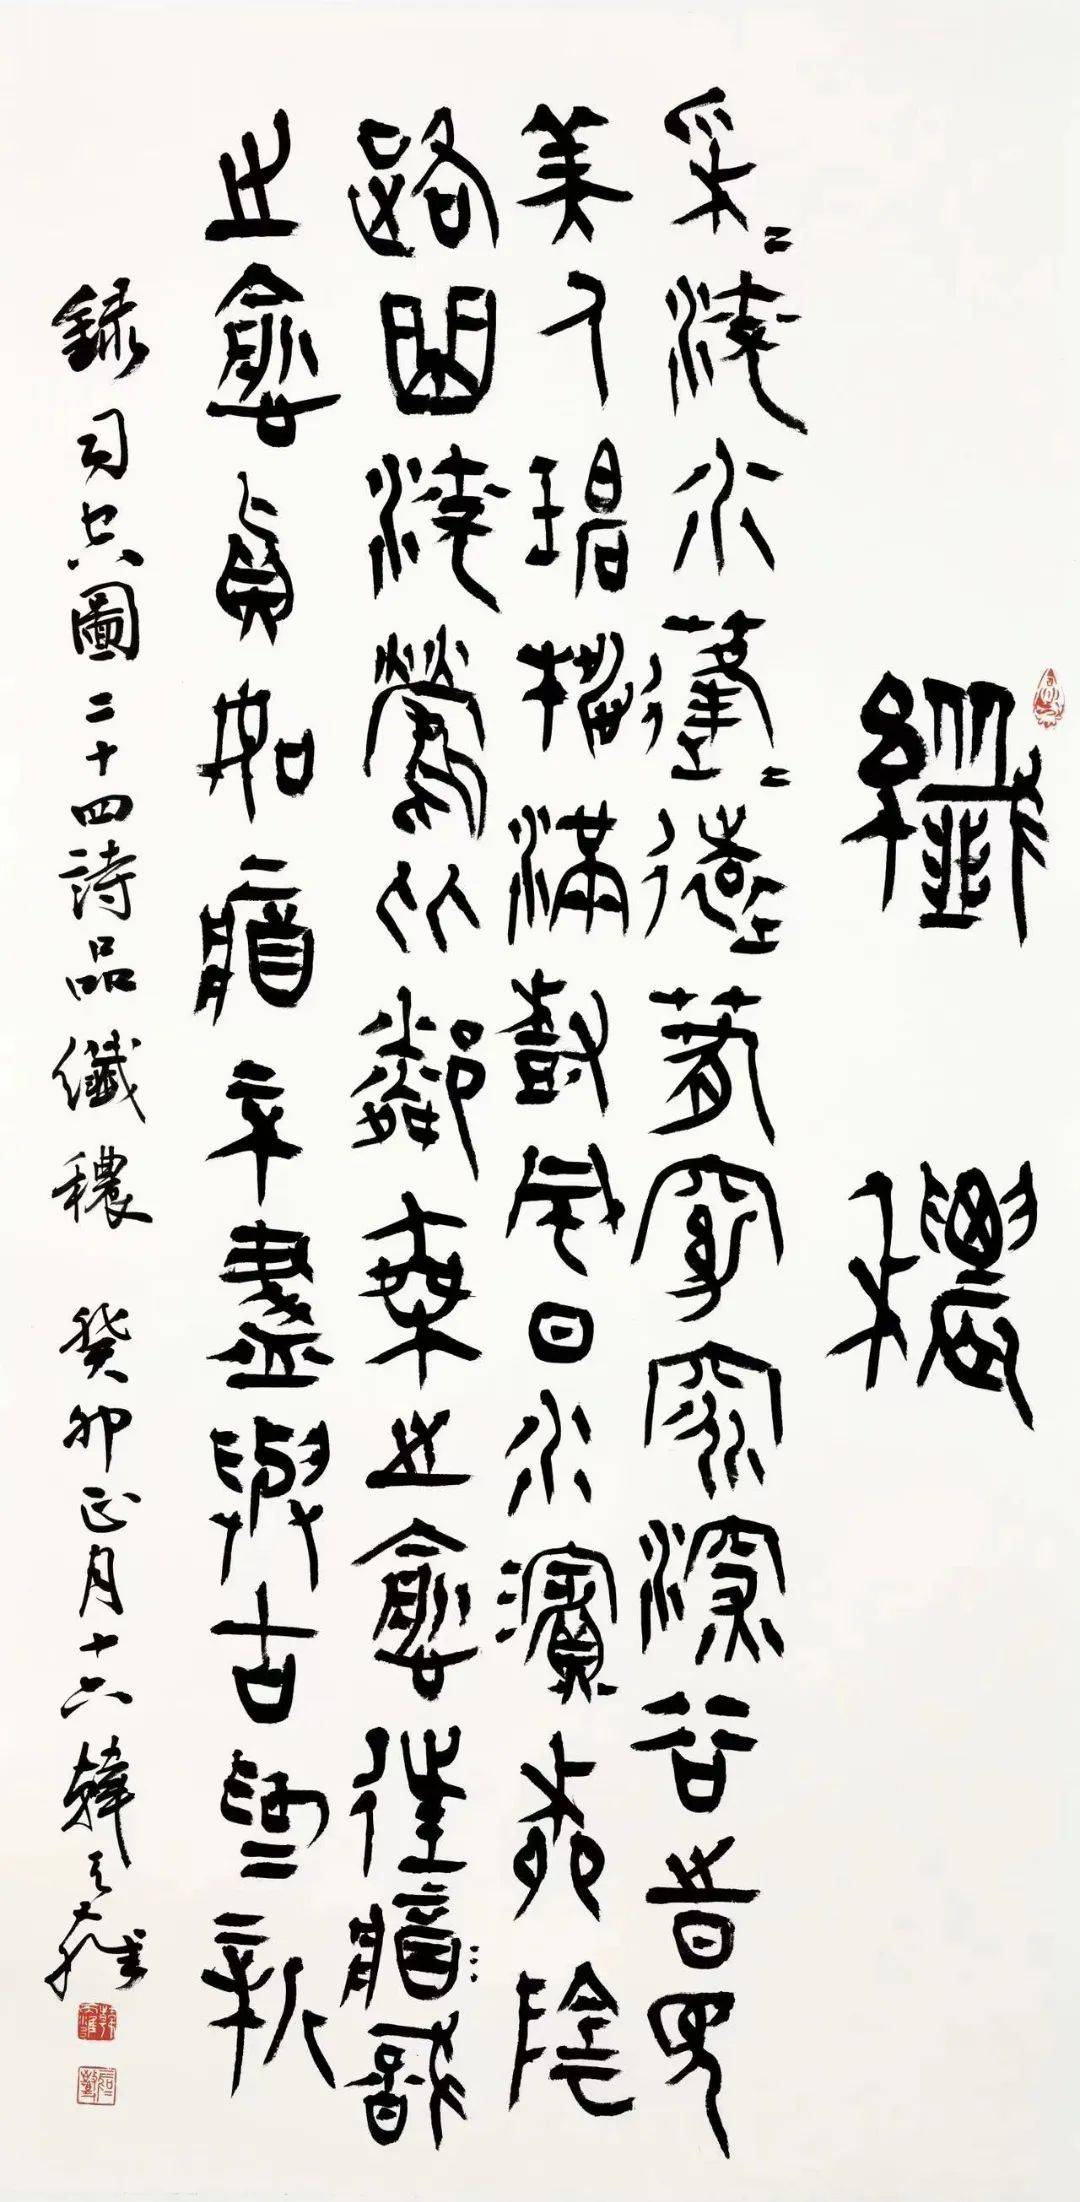 纖穠
采〻流水蓬〻遠春窈窕深谷時見
美人碧桃滿樹風日水濱柳陰
路曲流鶯比鄰乘之愈往將識
之愈真如將不盡與古為新
錄司空圖二十四詩品纖穠 癸卯正月十六韓天雍